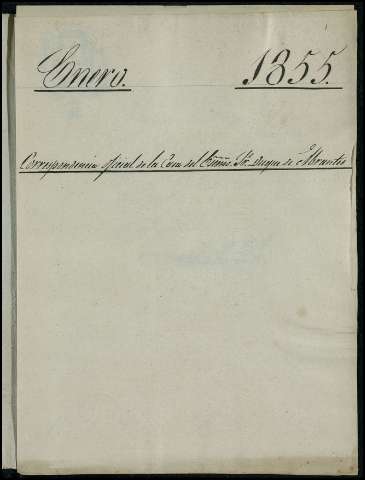 Enero. 1855.
Correspondencia oficial de la Casa del Exmo. Sr. Duque de Abrantes